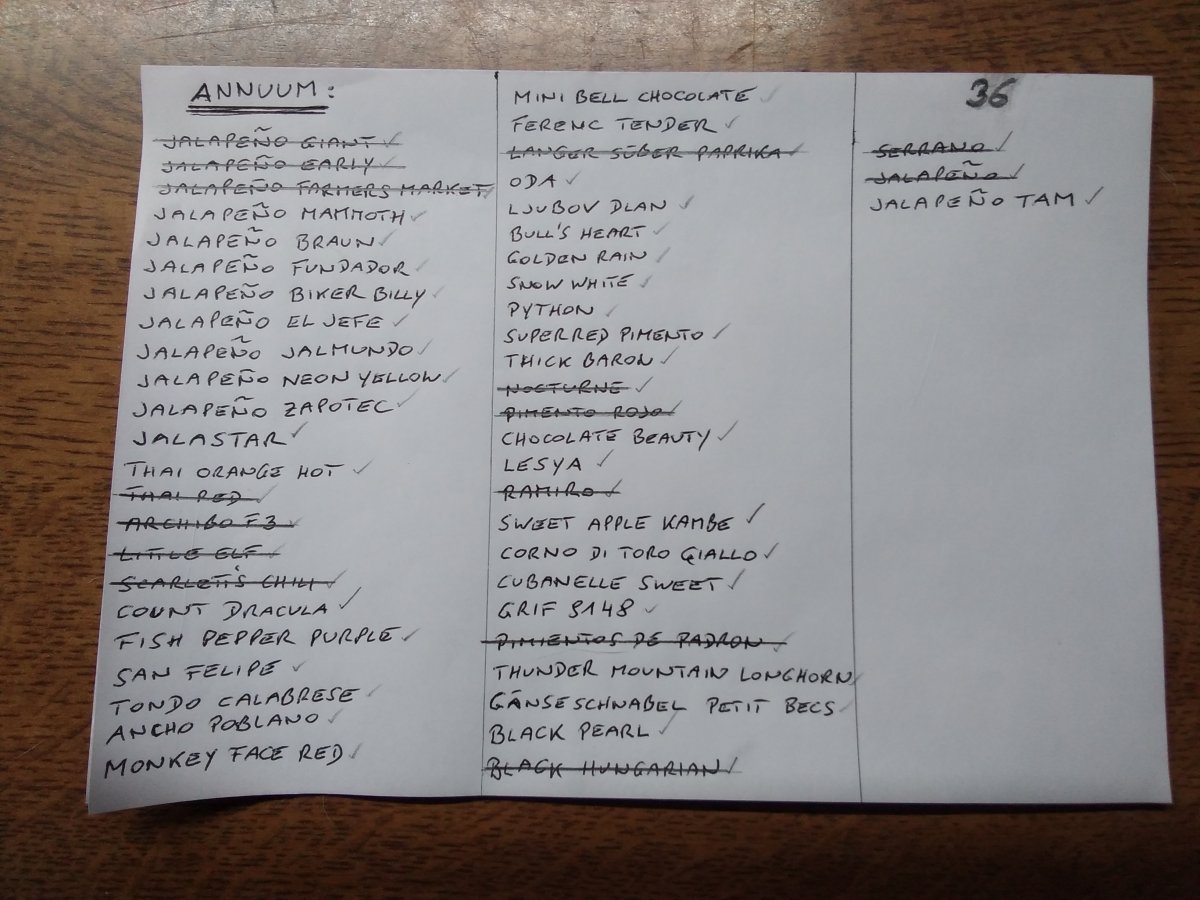 ANNUUM:
JALAPEÑO GIANT
JALAPEÑO EARLY
JALAPEÑO FARMERS MARKET
JALAPEÑO MAMMOTH
JALAPEÑO BRAUN
JALAPEÑO FUNDADOR
JALAPEÑO BIKER BILLY
JALAPEÑO EL JEFE
JALAPEÑO JALMUNDO
JALAPEÑO NEON YELLOW
JALAPEÑO ZAPOTEC
JALASTAR
THAI ORANGE HOT
THAI RED
ARCHIBO F3
LITTLE ELF
SCARLETT'S CHILI
COUNT DRACULA
FISH PEPPER PURPLE
SAN FELIPE
TONDO CALABRESE
ANCHO POBLANO
MONKEY FACE RED
MINI BELL CHOCOLATE
FERENC TENDER
LANGER SÜßER PAPRIKA
ODA
LJUBOV DLAN
BULL'S HEART
GOLDEN RAIN
SNOW WHITE
PYTHON
SUPERRED PIMENTO
THICK BARON
NOCTURNE
PIMENTO ROJO
CHOCOLATE BEAUTY
LESYA
RAMIRO
SWEET APPLE KAMBE
CORNO DI TORO GIALLO
CUBANELLE SWEET
GRIF 9148
PIMIENTOS DE PADRON
THUNDER MOUNTAIN LONGHORN
GÄNSESCHNABEL PETIT BECS
BLACK PEARL
BLACK HUNGARIAN
36
SERRANO
JALAPEÑO
JALAPEÑO TAM